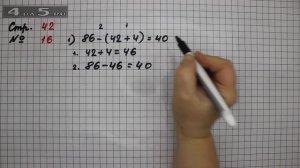 4DO.RU
Стр. 42
№ 16
2 1
1) 86 - (42 + 4) = 40
1. 42 + 4 = 46
2. 86 - 46 = 40